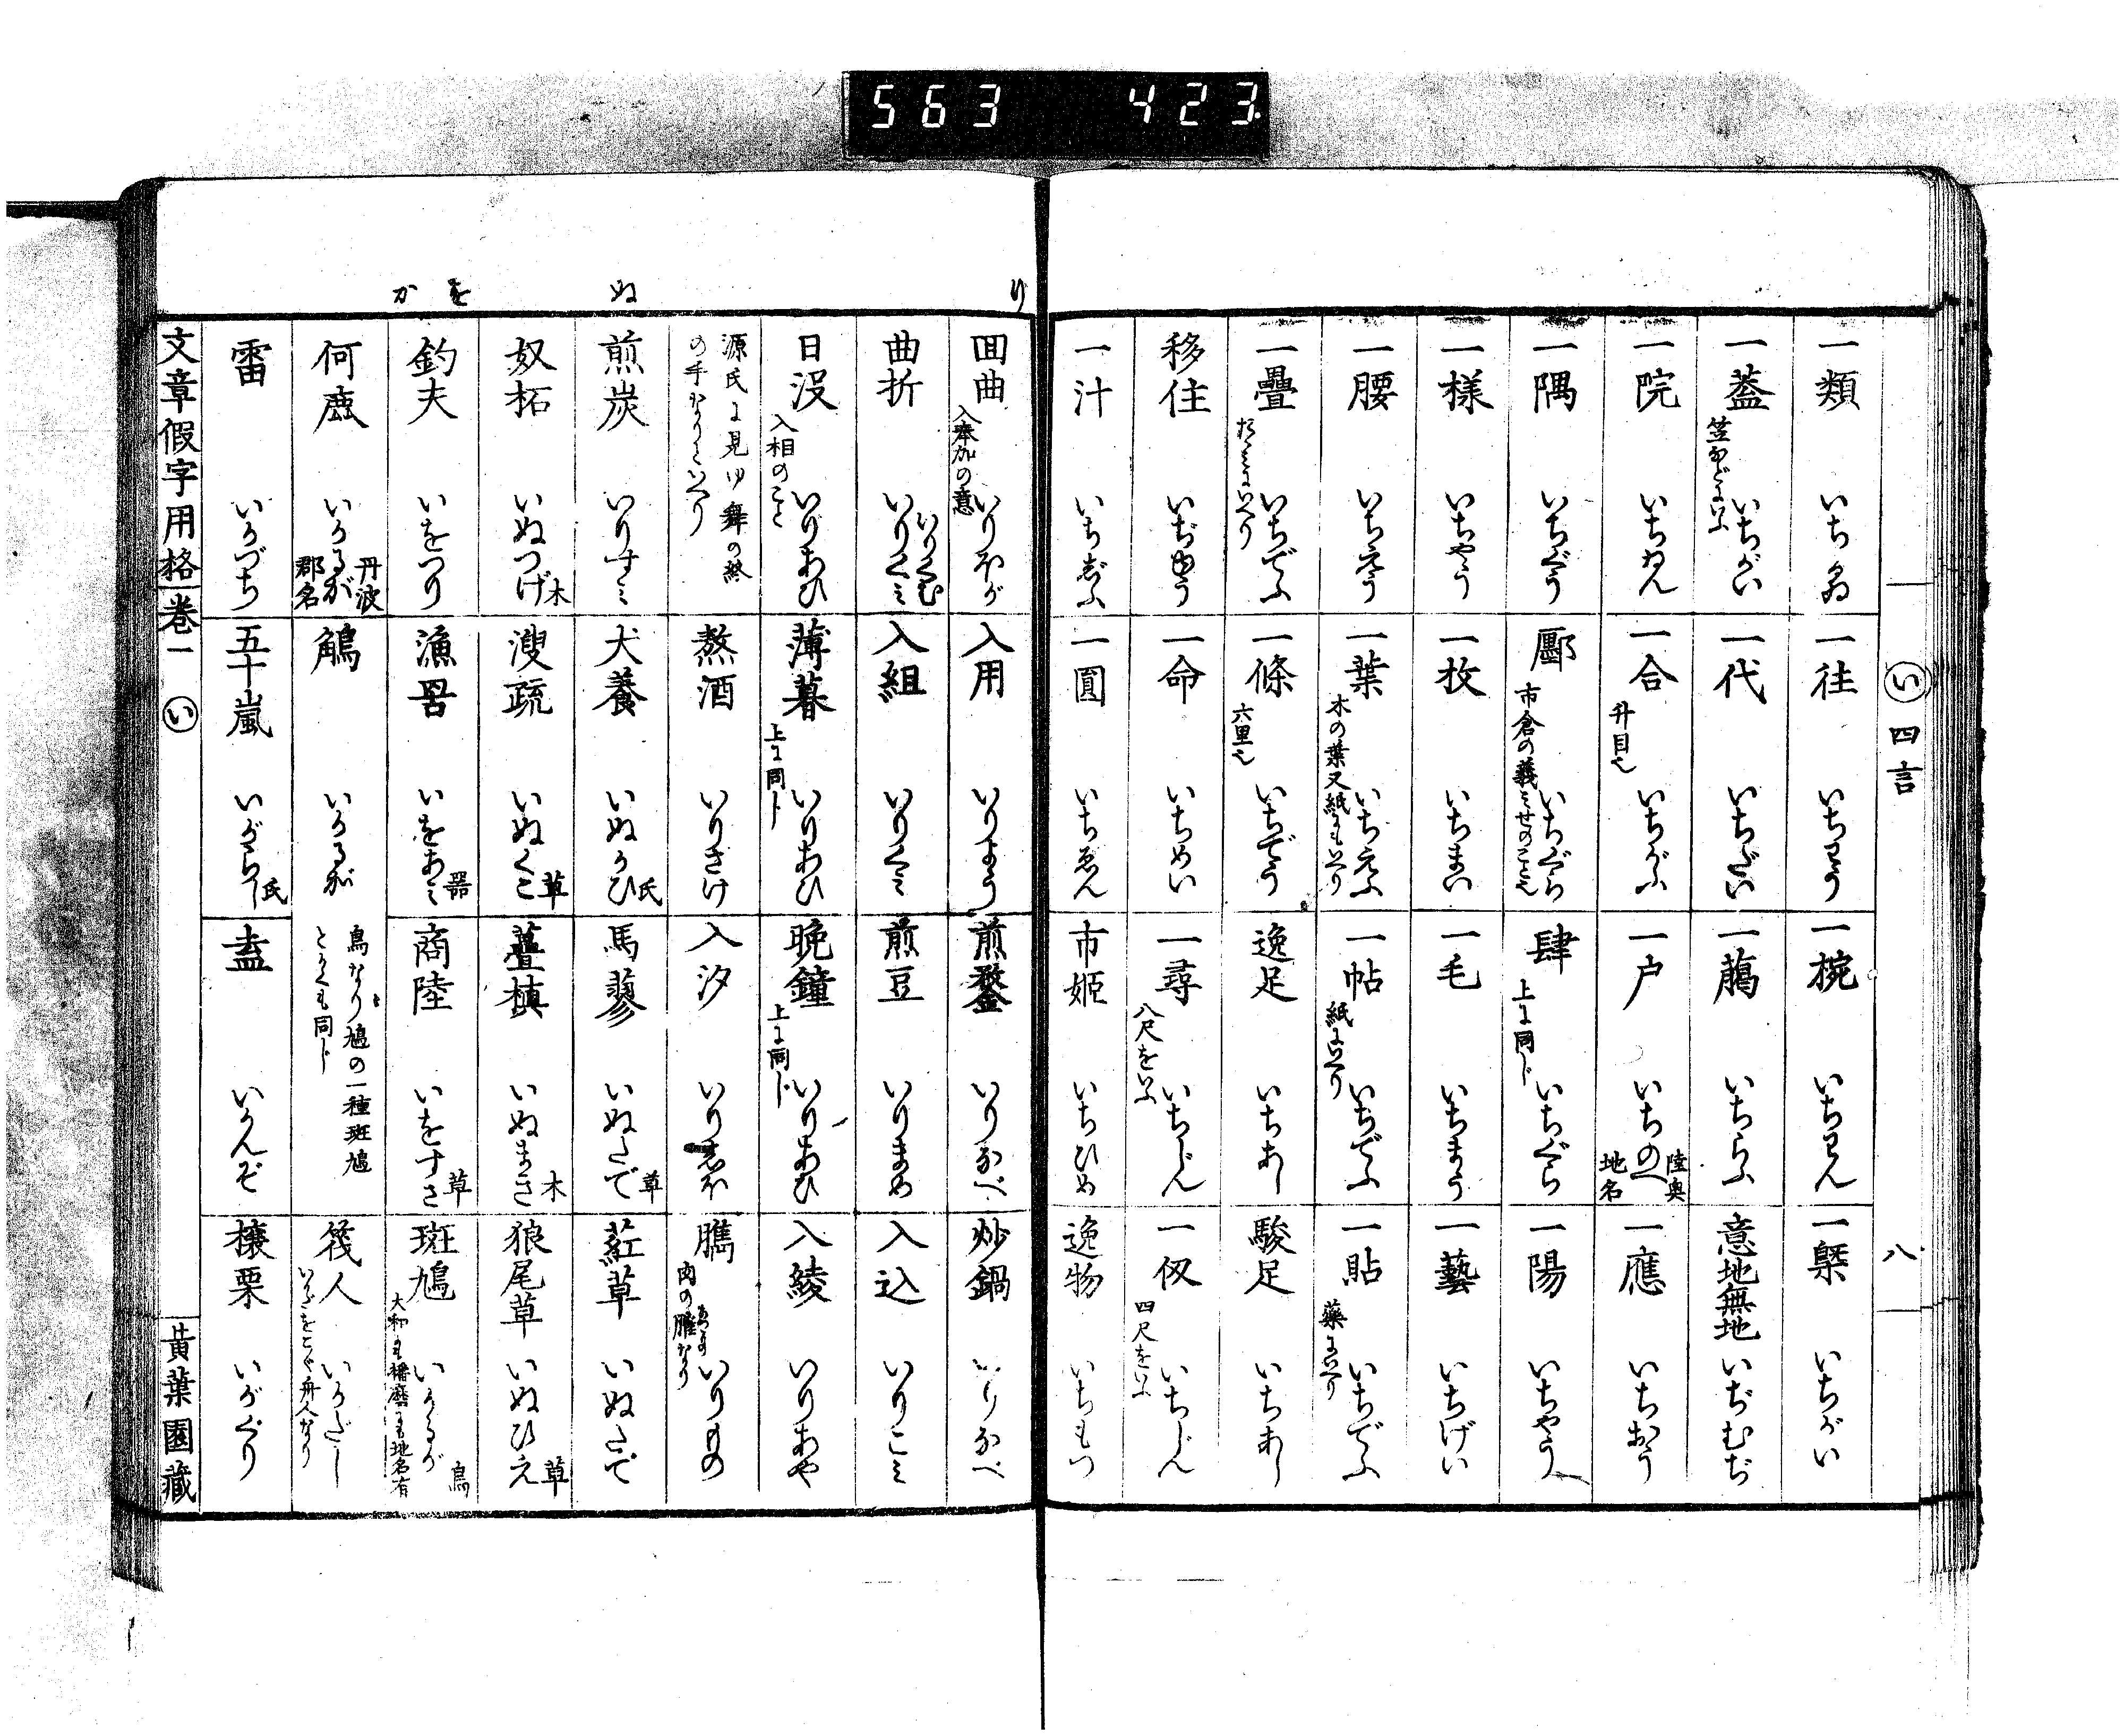 563 423
い 四言 八
一類 いちるゐ
一往 いちわう
一椀 いちわん
一槩 いちがい
一蓋 いちがい 笠などにいふ
一代 いちだい
一﨟 いちらふ
意地無地 いぢむぢ
一院 いちゐん
一合 いちがふ 升目也
一户 いちのへ 陸奥地名
一應 いちおう
一隅 いちぐう
鄽 いちぐら 市倉の義みせのこと也
肆 いちぐら 上に同じ
一陽 いちやう
一樣 いちやう
一枚 いちまい
一毛 いちまう
一藝 いちげい
一腰 いちえう
一葉 いちえふ 木の葉又紙にもいへり
一帖 いちでふ 紙にいへり
一貼 いちでふ 藥にいへり
一疊 いちでふ たゝみにいへり
一條 いちでう 六里也
逸足 いちあし
駿足 いちあし
移住 いぢゆう
一命 いちめい
一尋 いちじん 八尺をいふ
一仭 いちじん 四尺をいふ
一汁 いちじふ
一圓 いちゑん
市姬 いちひめ
逸物 いちもつ
り
ぬ
を
か
囬曲 いりほが
入用 いりよう
煎鍪 いりなべ
炒鍋 いりなべ
曲折 いりくむ いりくみ
入組 いりくみ
煎豆 いりまめ
入込 いりこみ
日没 いりあひ 入相のこと
薄暮 いりあひ 上に同じ
晩鐘 いりあひ 上に同じ
入綾 いりあや
源氏に見ゆ舞の終
の手なりといへり
熬酒 いりさけ
入汐 いりしほ
臇 いりもの
煎炭 いりすみ
犬養 いぬかひ 氏
馬蓼 いぬたで 草
葒草 いぬたで
奴柘 いぬつげ 木
溲疏 いぬくこ 草
藎槙 いぬまき 木
狼尾草 いぬひえ 草
釣夫 いをつり
漁罟 いをあみ 器
商陸 いをすき 草
斑鳩 いかるが 鳥 大和にも播磨にも地名有
何鹿 いかるが 丹波郡名
鵤 いかるが
鳥なり鳩の一種斑鳩
とかくも同じ
筏人 いかだし いかだをこぐ舟人なり
雷 いかづち
五十嵐 いがらし 氏
盍 いかんぞ
樣栗 いがぐり
文章假字用格 卷一 い 黄葉園藏